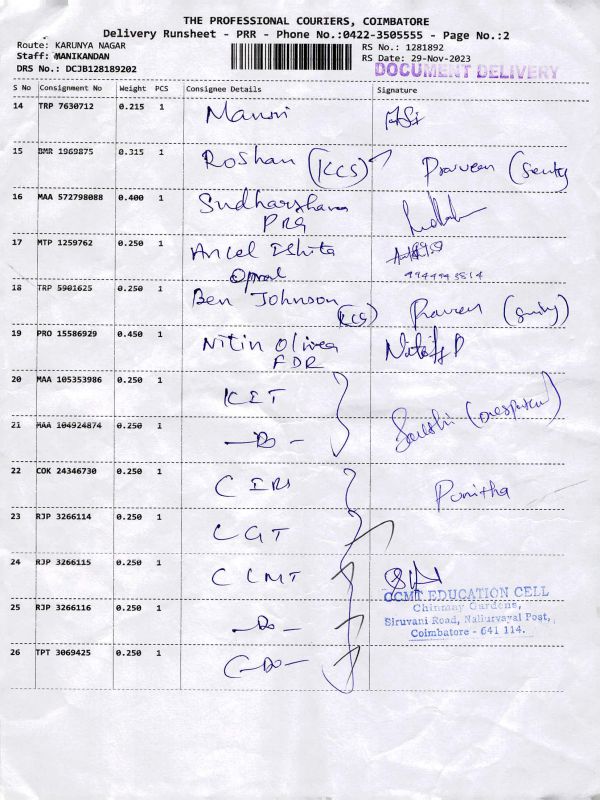 THE PROFESSIONAL COURIERS, COIMBATORE
Delivery Runsheet - PRR - Phone No.:0422-3505555 - Page No.:2
Route: KARUNYA NAGAR RS No.: 1281892
Staff: MANIKANDAN RS Date: 29-Nov-2023
DRS No.: DCJB128189202 DOCUMENT DELIVERY
S No Consignment No Weight PCS Consignee Details Signature
14 TRP 7630712 0.215 1
15 BMR 1969875 0.315 1 Roshan (KCS) Praveen
16 MAA 572798088 0.400 1 Sudharshana
PRG
17 MTP 1259762 0.250 1 Ancel Ishita
18 TRP 5901625 0.250 1 Ben Johnson (KCS) Praveen
19 PRO 15586929 0.450 1 Nitin Olivea
FDR
20 MAA 105353986 0.250 1
21 MAA 104924874 0.250 1 -Do-
22 COK 24346730 0.250 1 Punitha
23 RJP 3266114 0.250 1
24 RJP 3266115 0.250 1
CCMT EDUCATION CELL
Chinmay Gardens,
25 RJP 3266116 0.250 1 -Do- Siruvani Road, Nallurvayal Post,
Coimbatore - 641 114.
26 TPT 3069425 0.250 1 -Do-